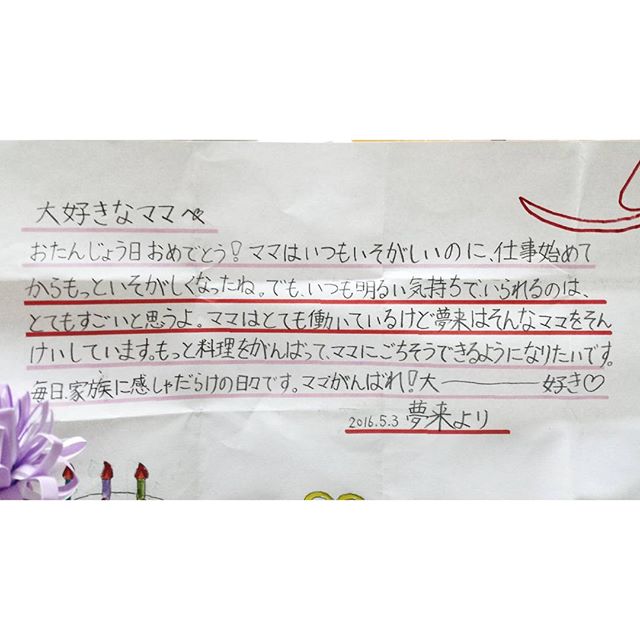 大好きなママへ
おたんじょう日おめでとう!ママはいつもいそがしいのに、仕事始めて
からもっといそがしくなったね。でも、いつも明るい気持ちでいられるのは、
とてもすごいと思うよ。ママはとても働いているけど夢来はそんなママをそん
けいしています。もっと料理をがんばって、ママにごちそうできるようになりたいです。
毎日、家族に感しゃだらけの日々です。ママがんばれ!大――――好き♡
2016.5.3 夢来より